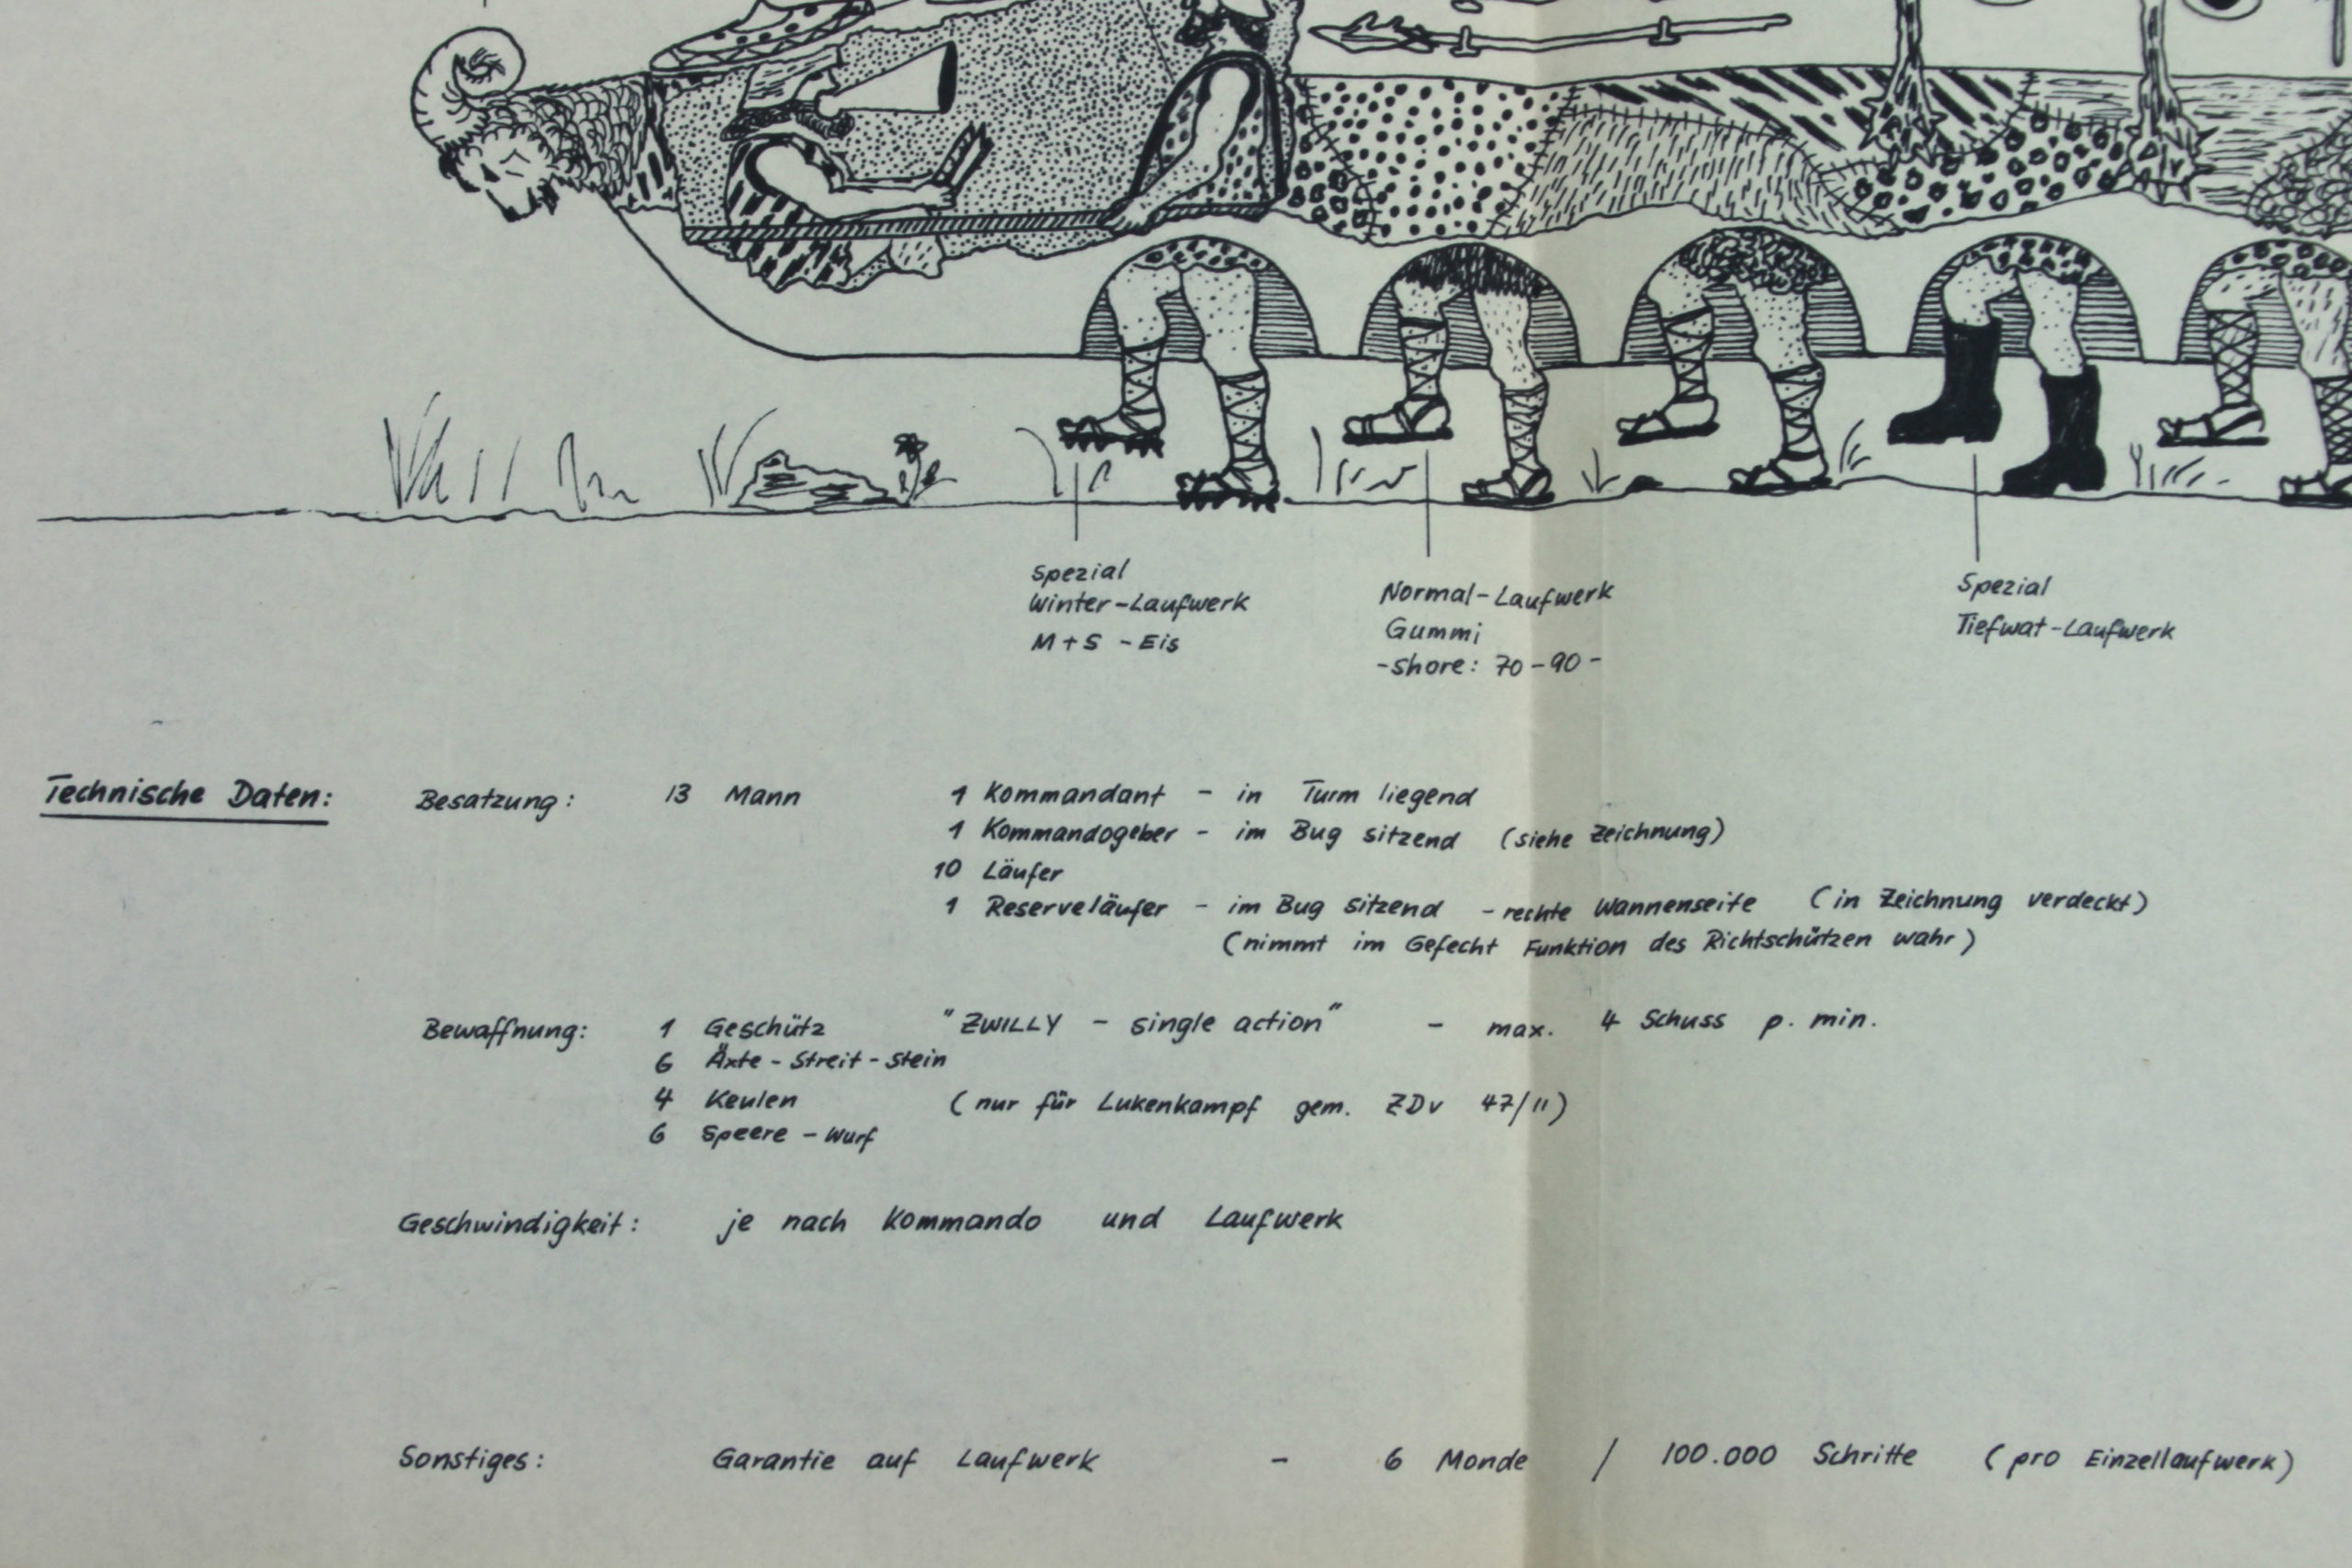 Spezial
Winter-Laufwerk
M+S -Eis
Normal-Laufwerk
Gummi
-shore: 70-90-
Spezial
Tiefwat-Laufwerk
Technische Daten: Besatzung: 13 Mann 1 Kommandant - in Turm liegend
1 Kommandogeber - im Bug sitzend (siehe Zeichnung)
10 Läufer
1 Reserveläufer - im Bug sitzend - rechte Wannenseite (in Zeichnung verdeckt)
(nimmt im Gefecht Funktion des Richtschützen wahr)
Bewaffnung: 1 Geschütz "ZWILLY - single action" - max. 4 Schuss p. min.
6 Äxte - Streit - Stein
4 Keulen (nur für Lukenkampf gem. ZDv 47/11)
6 Speere - Wurf
Geschwindigkeit: je nach Kommando und Laufwerk
Sonstiges: Garantie auf Laufwerk - 6 Monde / 100.000 Schritte (pro Einzellaufwerk)